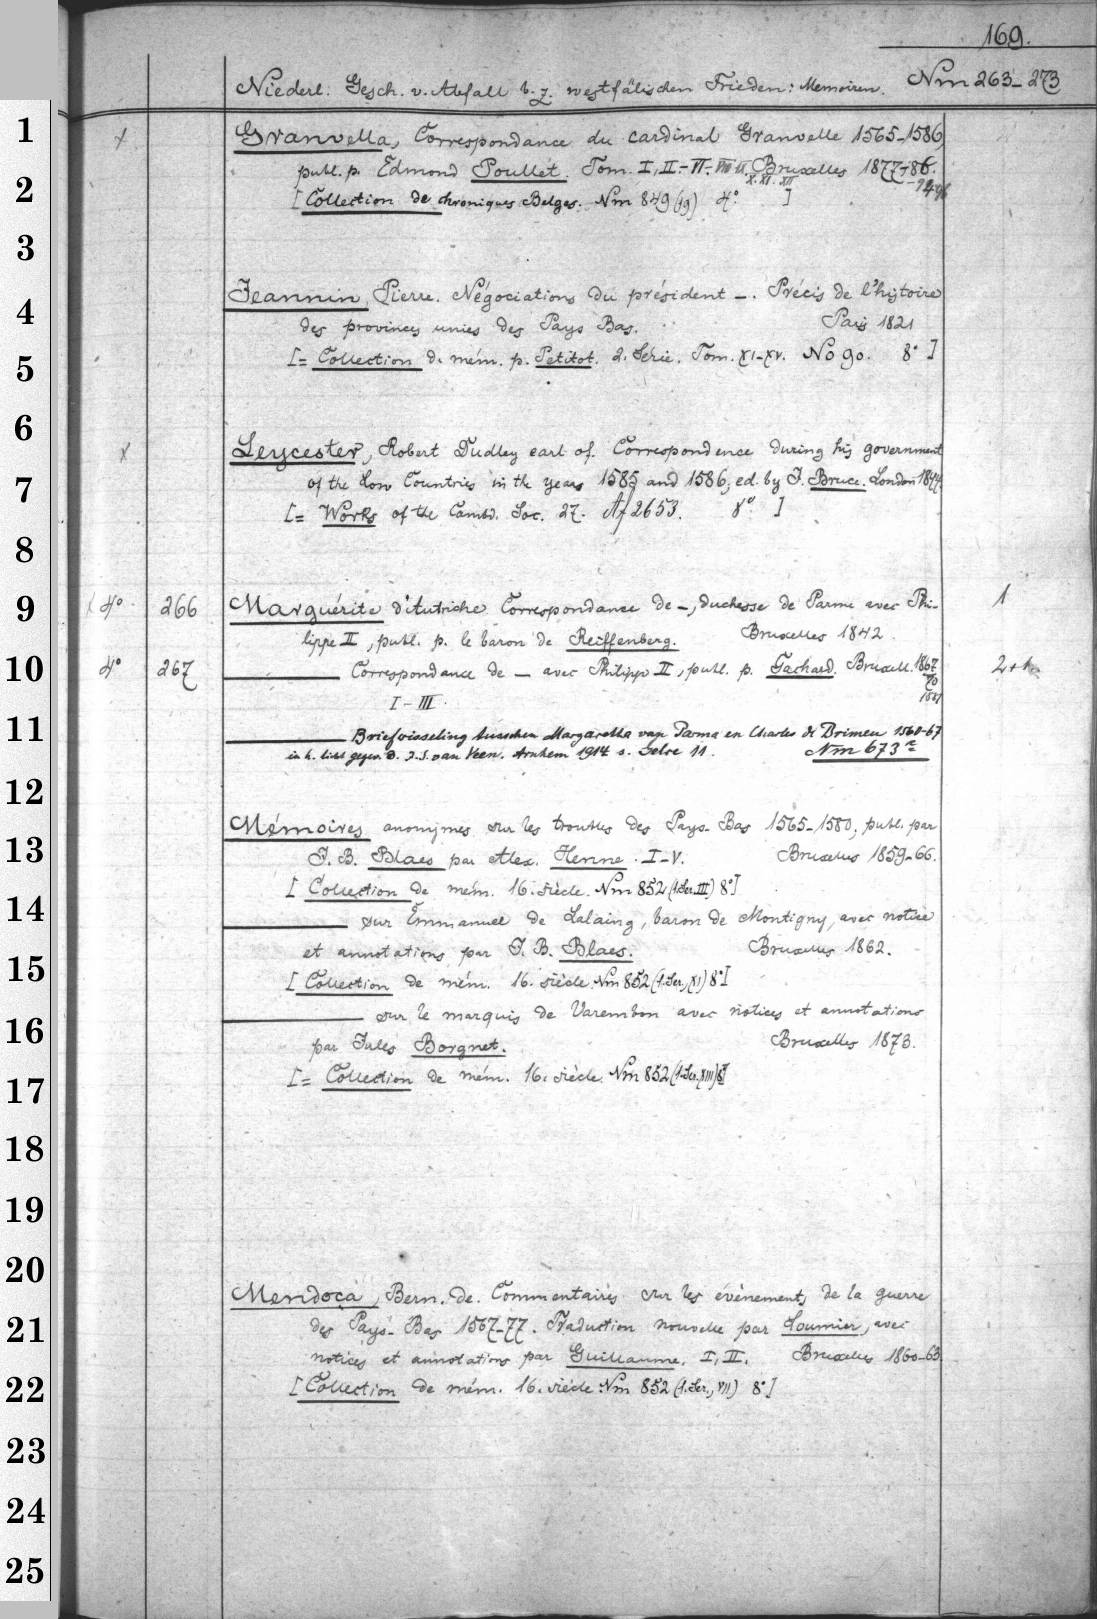 169.
Niederl. Gesch. v. Abfall b. z. westfälischen Frieden: Memoiren. Nm 263-273
1
Granvella, Correspondance du cardinal Granvelle 1565-1586,
publ. p. Edmond Poullet. Tom. I, II-VI. VII-IX. X. XI. XII Bruxelles 1877-86.
-96
2
[Collection de chroniques Belges. Nm 849 (19) 4° ]
3
Jeannin, Pierre. Négociations du président -. Précis de l'histoire
4
des provinces unies des Pays Bas. Paris 1821
5
[= Collection d. mém. p. Petitot. 2. Série. Tom. XI-XV. No 90. 8° ]
6
Leycester, Robert Dudley earl of. Correspondence during his government
7
of the Low Countries in the years 1585 and 1586, ed. by J. Bruce. London 1844.
[= Works of the Camd. Soc. 27. Af 2653. 8° ]
8
9
4° 266 Marguérite d'Autriche. Correspondance de -, duchesse de Parme avec Phi- 1
lippe II, publ. p. le baron de Reiffenberg. Bruxelles 1842.
10
4° 267 Correspondance de - avec Philippe II, publ. p. Gachard. Bruxell. 1867 2+1
I-III. 1881
11
Briefwisseling tusschen Margaretha van Parma en Charles de Brimeu 1560-67
in h. licht gegev. d. J. S. van Veen. Arnhem 1914 s. Gelre 11. Nm 673
12
Mémoires anonymes sur les troubles des Pays-Bas 1565-1580, publ. par
13
J. B. Blaes par Alex. Henne. I-V. Bruxelles 1859-66.
[Collection de mém. 16. siècle. Nm 852 (1. Ser. III) 8°]
14
sur Emmanuel de Lalaing, baron de Montigny, avec notice
et annotations par J. B. Blaes. Bruxelles 1862.
15
[Collection de mém. 16. siècle. Nm 852 (1. Ser., XI) 8°]
16
sur le marquis de Varembon avec notices et annotations
par Jules Borgnet. Bruxelles 1873.
17
[= Collection de mém. 16. siècle. Nm 852 (1. Ser. XIII) 8°]
18
19
20
Mendoça, Bern. de. Commentaires sur les événements de la guerre
21
des Pays-Bas 1567-77. Traduction nouvelle par Loumier, avec
notices et annotations par Guillaume. I, II. Bruxelles 1860-63.
22
[Collection de mém. 16. siècle: Nm 852 (1. Ser., VII) 8°]
23
24
25